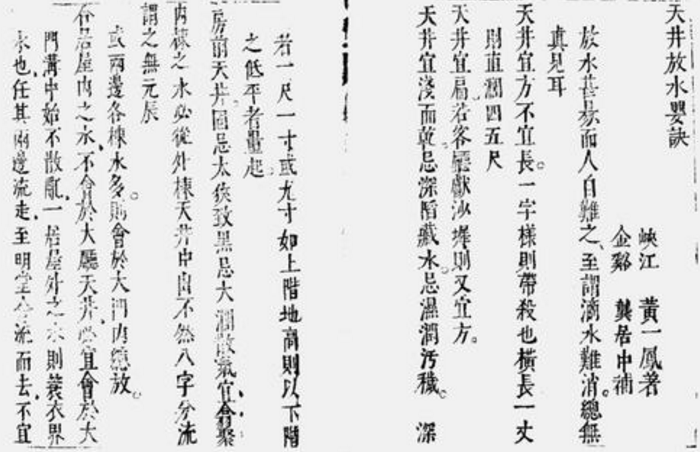 天井放水嬰訣
峽江 黃一鳳著
金谿 龔居中補
放水甚易而人自難之至謂滴水難消總無
真見耳
天井宜方不宜長。一字樣則帶殺也橫長一丈
則直濶四五尺
天井宜扁若客廳獻沙墀則又宜方。
天井宜淺而乾忌深陷藏水。忌濕潤污穢。深
若一尺一寸或九寸如上階地高則以下階
之低平者量起。
房前天井固忌太俠致黑忌大濶散氣宜會聚
內棟之水必從外棟天井中自不然八字分流
謂之無元辰
或兩邊各棟水多。則會於大門內總放。
居屋內之水不會於大廳天井。必宜會於大
門溝中始不散亂一居屋外之水則簑衣界
水也任其兩邊流走至明堂合流而去不宜